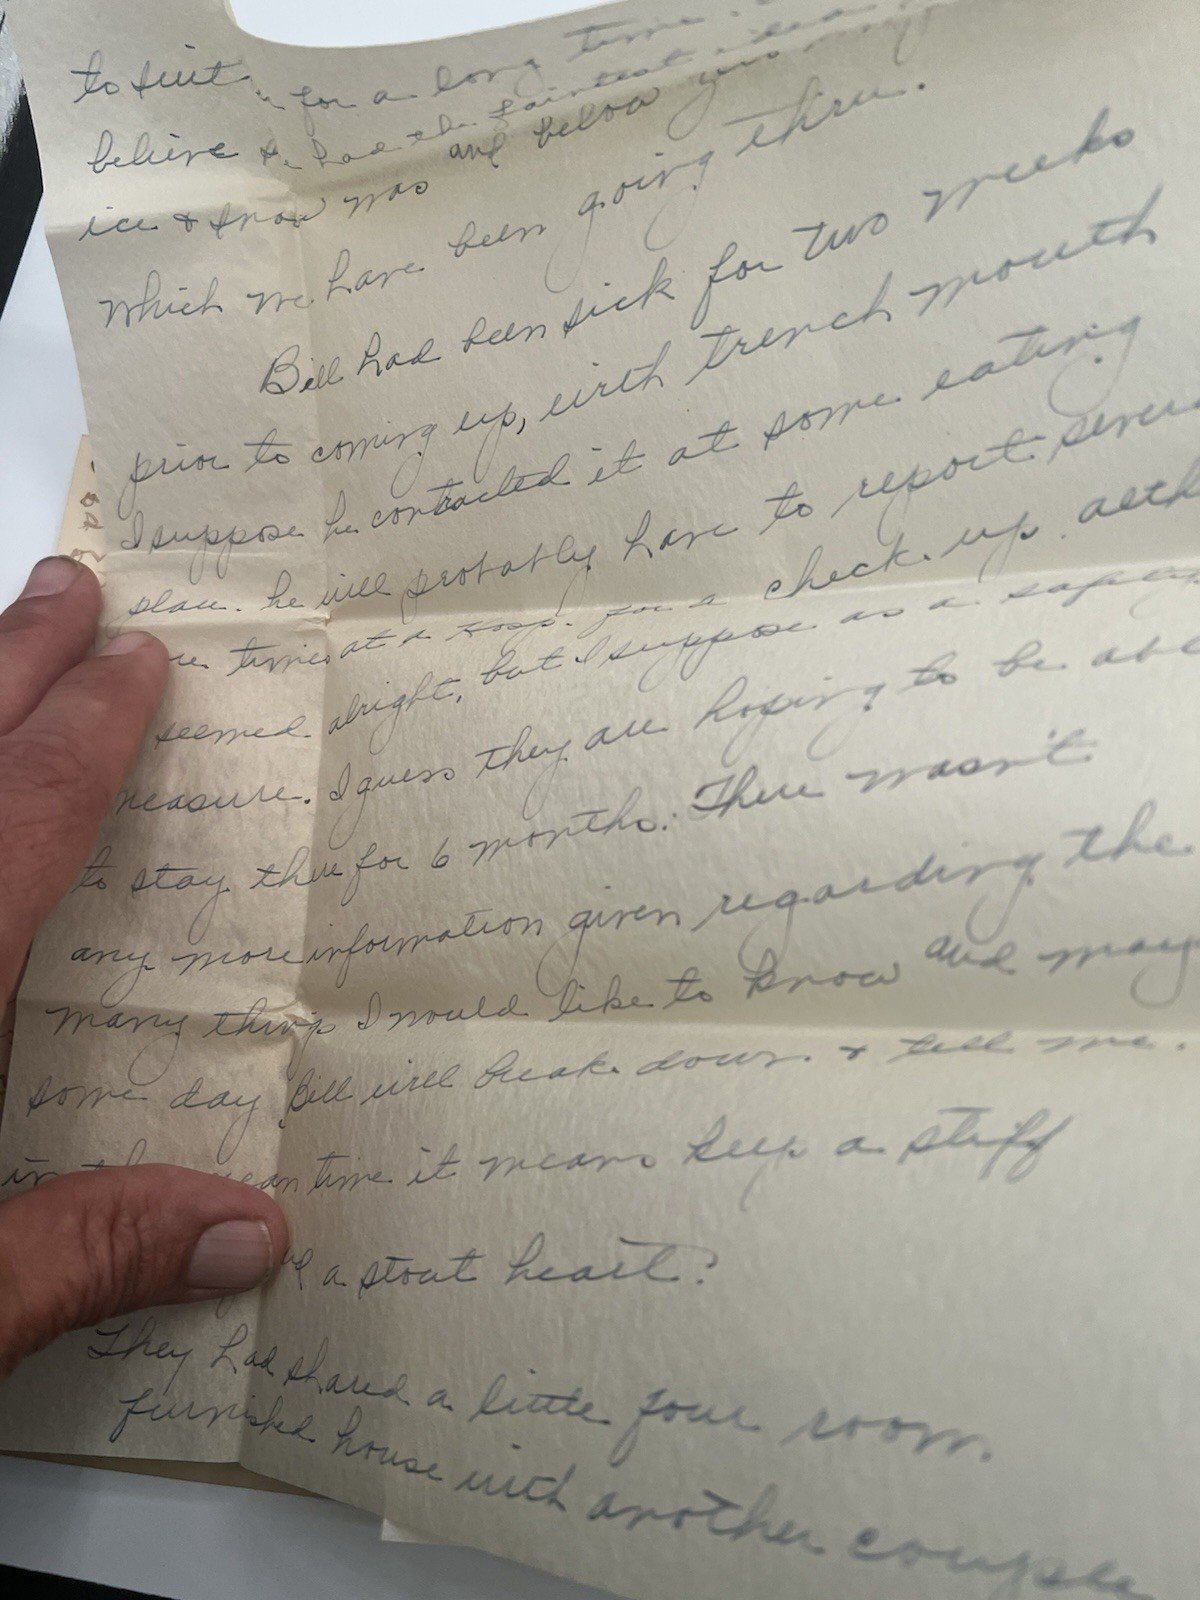 to suit for a long time.
believe he had the faintest idea
ice & snow was and below zero
which we have been going thru.
Bill had been sick for two weeks
prior to coming up, with trench mouth
I suppose he contracted it at some eating
place. he will probably have to report
times at a hosp. for a check up.
seemed alright, but I suppose as a
measure. I guess they are hoping to be
to stay there for 6 months. There wasn't
any more information given regarding the
many things I would like to know and
some day Bill will break down & tell me.
in time it means keep a stiff
a stout heart.
They had shared a little four room.
furnished house with another couple